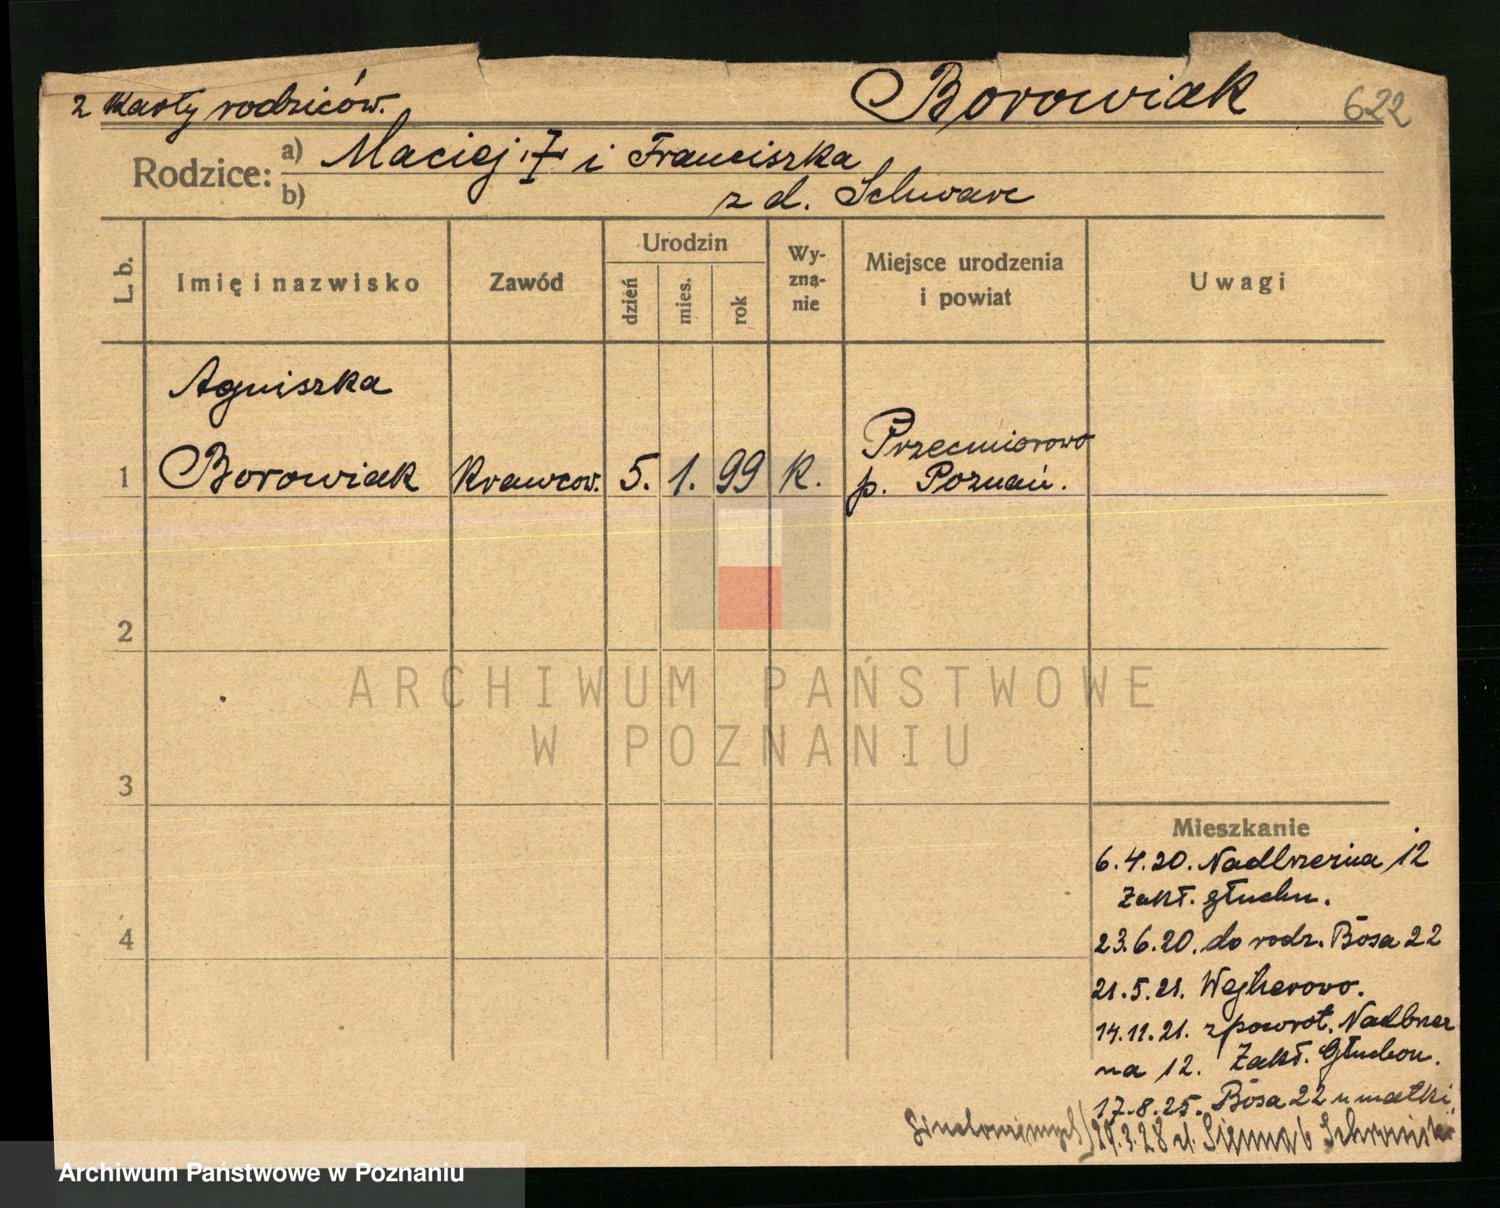 z karty rodziców. Borowiak 622
Rodzice: a) Maciej i Franciszka
b) z d. Schwarc
L. b. Imię i nazwisko Zawód Urodzin dzień mies. rok Wy-zna-nie Miejsce urodzenia i powiat Uwagi
Agniszka
1 Borowiak Krawcow. 5. 1. 99 K. Przecmiorowo
p. Poznań.
2
3
4
Mieszkanie
6.4.20. Nadbrzeżna 12
Zakł. głuchn.
23.6.20. do rodz. Bosa 22
21.5.21. Wejherowo.
14.11.21. z powrot. Nadbrzeż
na 12. Zakł. Głuchon.
17.8.25. Bosa 22 u matki
3.28 Sienna
ARCHIWUM PAŃSTWOWE
W POZNANIU
Archiwum Państwowe w Poznaniu